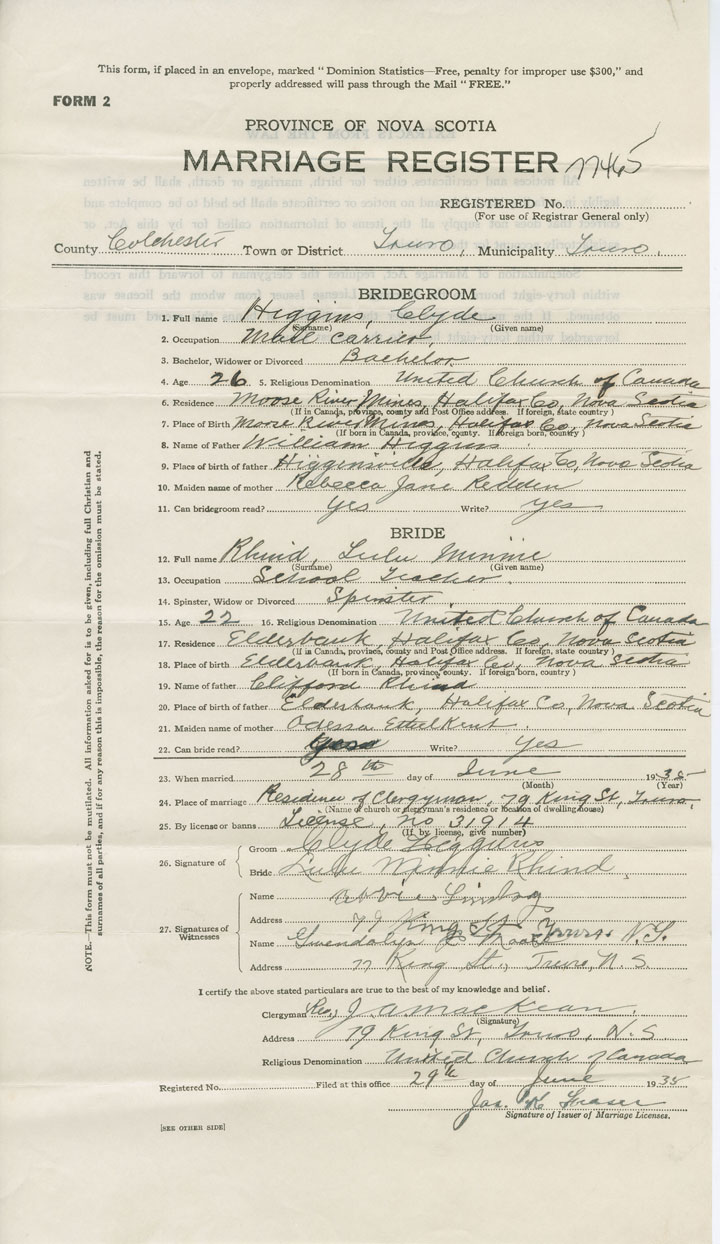 This form, if placed in an envelope, marked "Dominion Statistics—Free, penalty for improper use $300," and
properly addressed will pass through the Mail "FREE."
FORM 2
PROVINCE OF NOVA SCOTIA
MARRIAGE REGISTER
REGISTERED No.
(For use of Registrar General only)
County Colchester Town or District Truro, Municipality Truro.
BRIDEGROOM
1. Full name Higgins, Clyde
(Surname) (Given name)
2. Occupation Mail Carrier
3. Bachelor, Widower or Divorced Bachelor
4. Age 26 5. Religious Denomination United Church of Canada
6. Residence Moose River Mines, Halifax Co, Nova Scotia
(If in Canada, province, county and Post Office address. If foreign, state country)
7. Place of Birth Moose River Mines, Halifax Co, Nova Scotia
(If born in Canada, province, county. If foreign born, country)
8. Name of Father William Higgins
9. Place of birth of father Higginsville, Halifax Co, Nova Scotia
10. Maiden name of mother Rebecca Jane Redden
11. Can bridegroom read? Yes Write? yes
BRIDE
12. Full name Rhind, Lulu Minnie
(Surname) (Given name)
13. Occupation School Teacher.
14. Spinster, Widow or Divorced Spinster.
15. Age 22 16. Religious Denomination United Church of Canada
17. Residence Elderbank, Halifax Co, Nova Scotia
(If in Canada, province, county and Post Office address. If foreign, state country)
18. Place of birth Elderbank, Halifax Co, Nova Scotia
(If born in Canada, province, county. If foreign born, country)
19. Name of father Clifford Rhind
20. Place of birth of father Elderbank, Halifax Co, Nova Scotia
21. Maiden name of mother Odessa Ethel Kent
22. Can bride read? yes Write? Yes
23. When married 28th day of June 1935
(Month) (Year)
24. Place of marriage Residence of Clergyman, 79 King St, Truro,
(Name of church or clergyman's residence or location of dwelling house)
25. By license or banns License, no 31914
(If by license, give number)
26. Signature of
Groom Clyde Higgins
Bride Lulu Minnie Rhind.
27. Signatures of Witnesses
Name
Address 79 King St. Truro N.S.
Name Gwendolyn
Address 77 King St., Truro, N.S.
I certify the above stated particulars are true to the best of my knowledge and belief.
Clergyman Rev. J. A. MacKean.
(Signature)
Address 79 King St, Truro, N.S.
Religious Denomination United Church of Canada
Registered No. Filed at this office 29th day of June 1935
Jas. K Fraser
Signature of Issuer of Marriage Licenses.
[SEE OTHER SIDE]
NOTE.—This form must not be mutilated. All information asked for is to be given, including full Christian and
surnames of all parties, and if for any reason this is impossible, the reason for the omission must be stated.